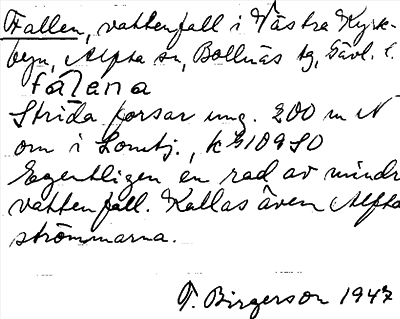 Fallen, vattenfall i Västra Kyrk-
byn, Alfta sn, Bollnäs tg, Gävl. l.
fálena
Strida forsar ung. 200 m N
om i Lomtj., k
Egentligen en rad av mindr
vattenfall. Kallas även Alfta
strömmarna.
T. Birgerson 1947